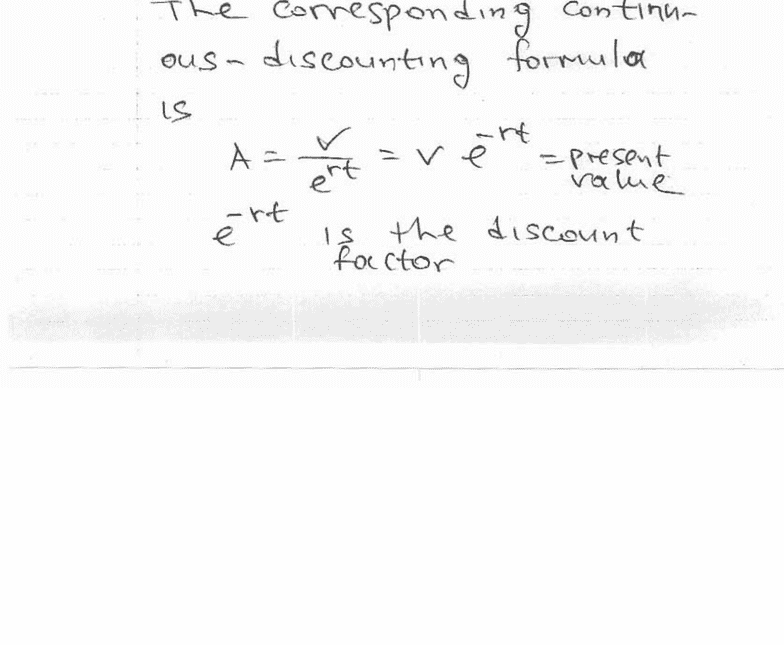 The corresponding continu-
ous-discounting formula
is
A = V/e^rt = V e^-rt = present value
e^-rt is the discount
factor